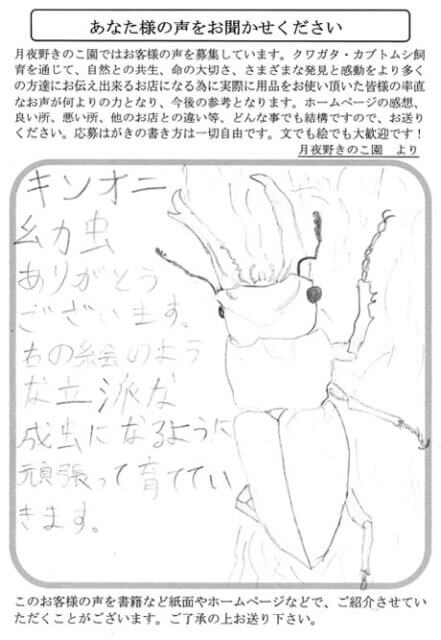 あなた様の声をお聞かせください
月夜野きのこ園ではお客様の声を募集しています。クワガタ・カブトムシ飼
育を通じて、自然との共生、命の大切さ、さまざまな発見と感動をより多く
の方達にお伝え出来るお店になる為に実際に用品をお使い頂いた皆様の率直
なお声が何よりの力となり、今後の参考となります。ホームページの感想、
良い所、悪い所、他のお店との違い等、どんな事でも結構ですので、お送り
ください。応募はがきの書き方は一切自由です。文でも絵でも大歓迎です！
月夜野きのこ園　より
キソオニ
幼虫
ありがとう
ございます。
右の絵のよう
な立派な
成虫になるように
頑張って育ててい
きます。
このお客様の声を書籍など紙面やホームページなどで、ご紹介させてい
ただくことがございます。ご了承の上お送り下さい。